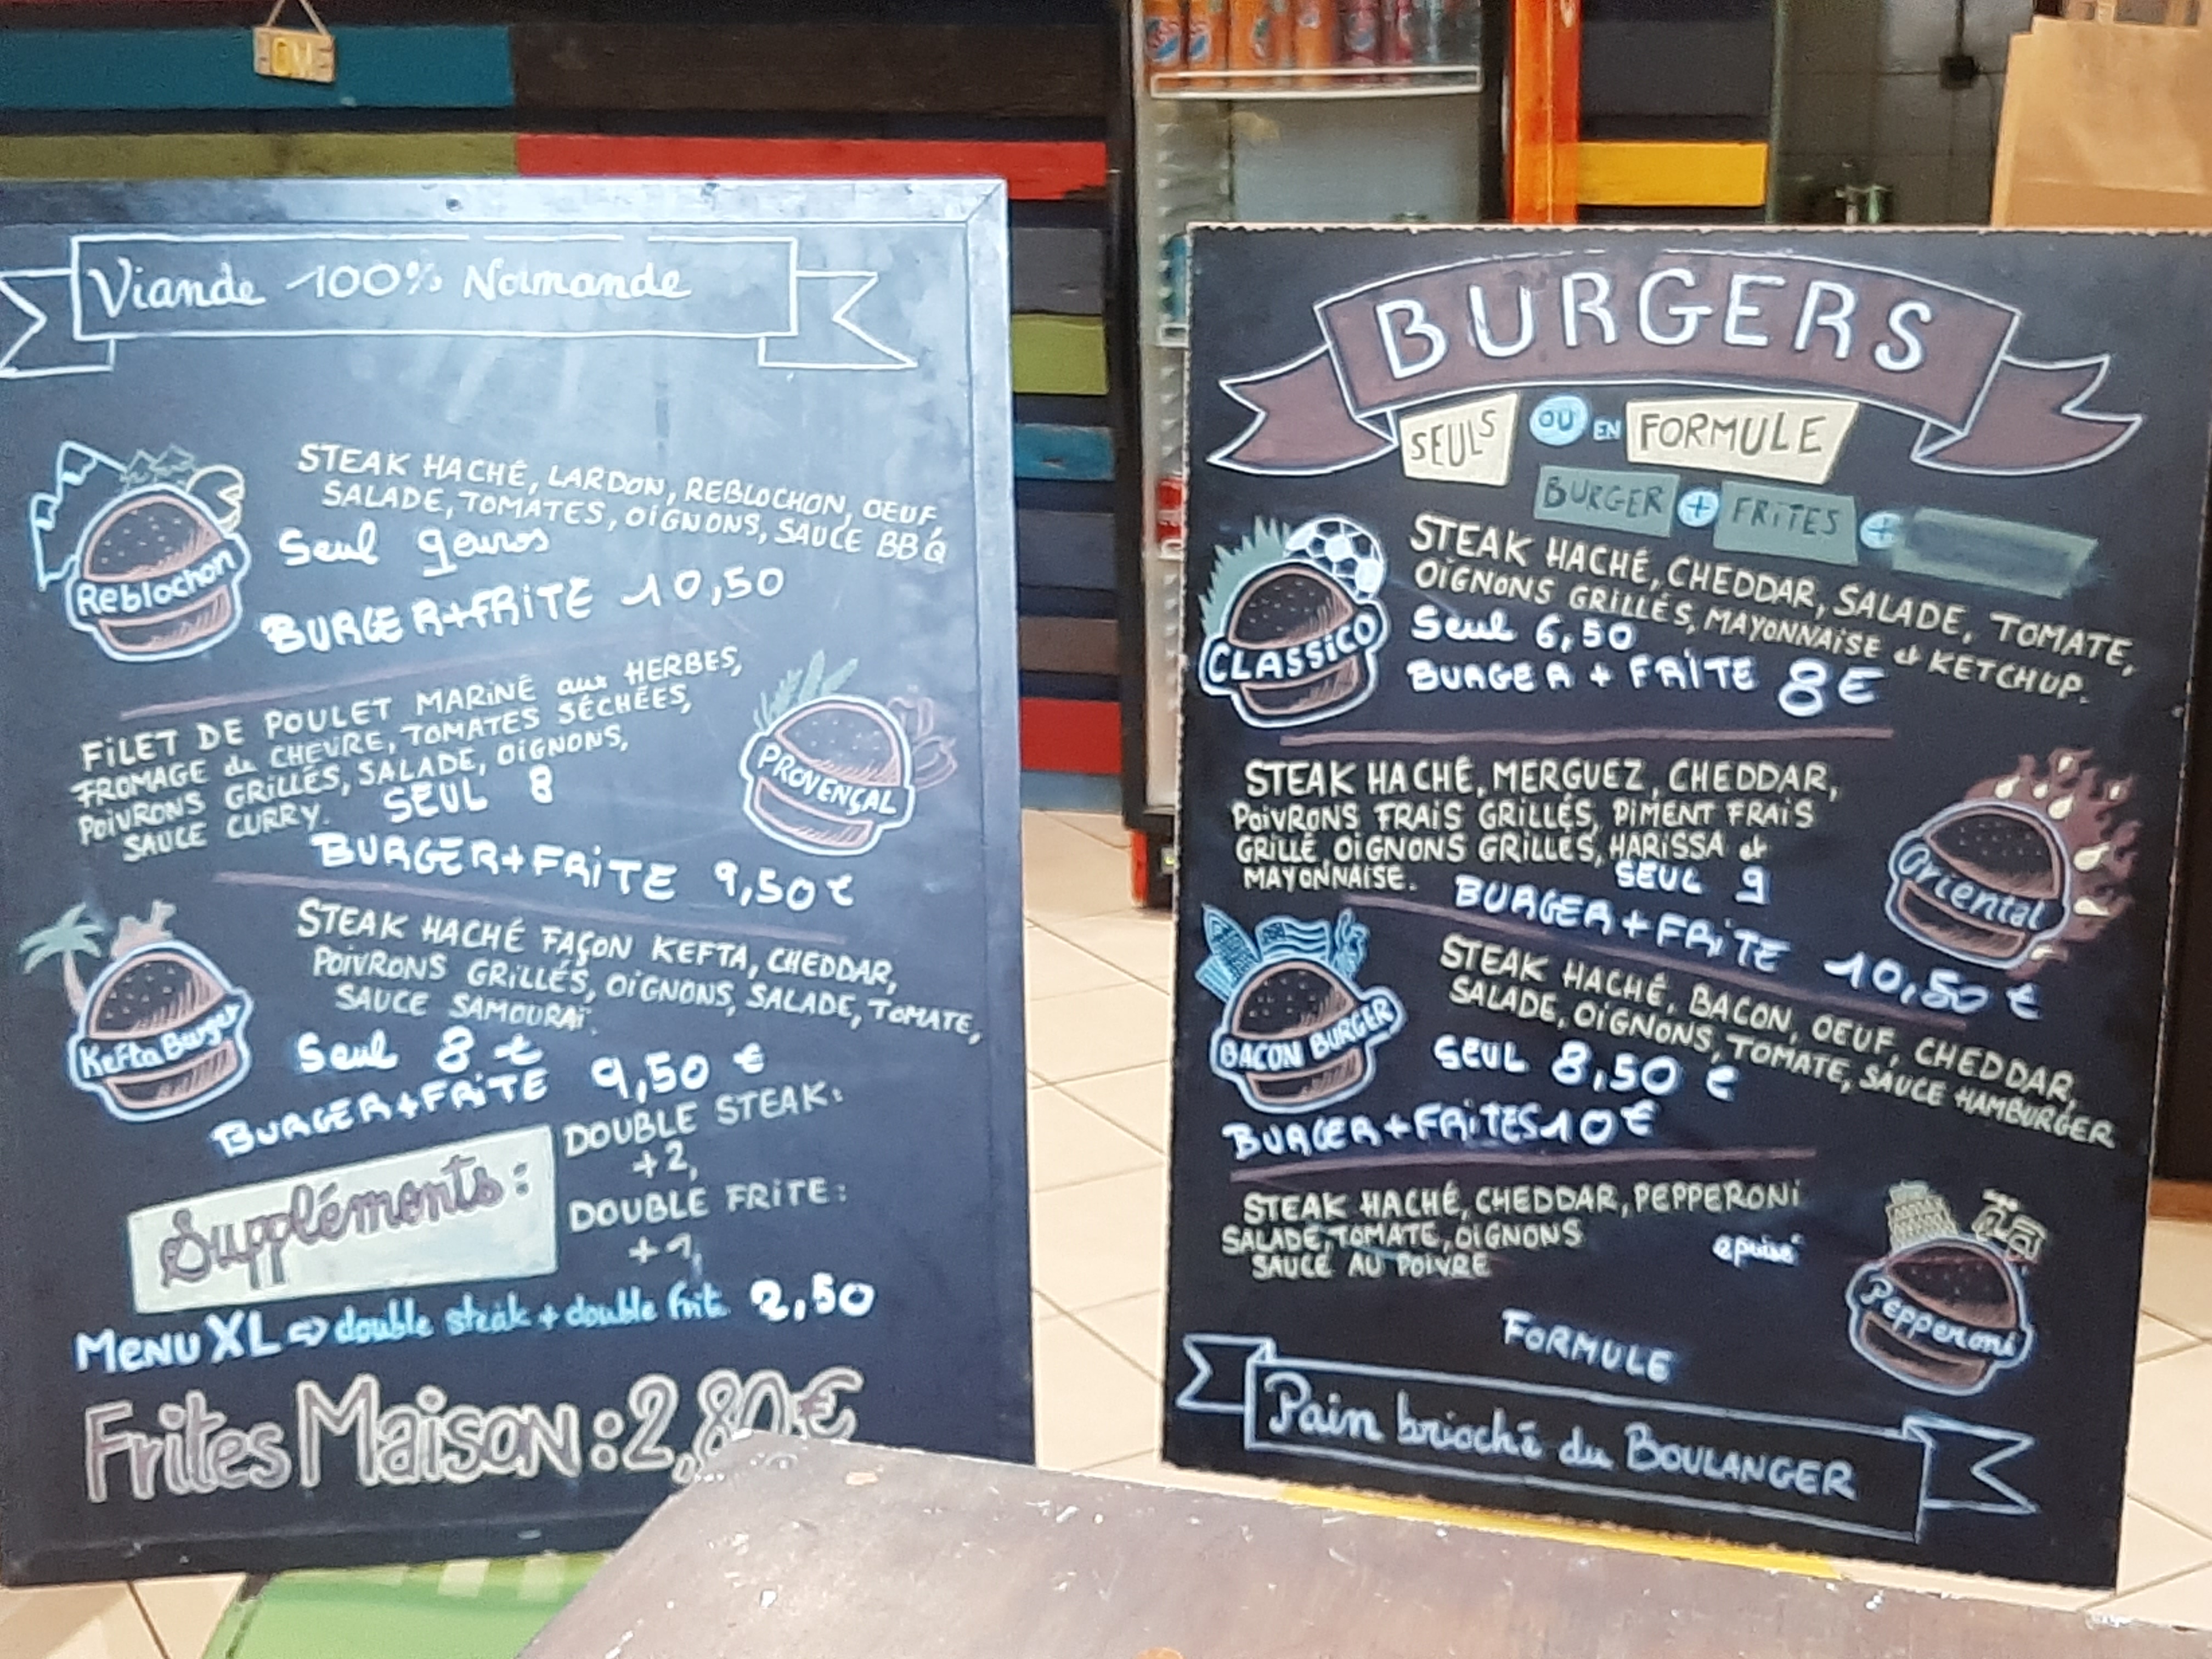 OM
Viande 100% Normande
STEAK HACHÉ, LARDON, REBLOCHON, OEUF,
SALADE, TOMATES, OIGNONS, SAUCE BBQ
Reblochon
Seul 9euros
BURGER+FRITE 10,50
FILET DE POULET MARINÉ aux HERBES,
FROMAGE de CHEVRE, TOMATES SÉCHÉES,
POIVRONS GRILLÉS, SALADE, OIGNONS,
SAUCE CURRY.
SEUL 8
PROVENÇAL
BURGER+FRITE 9,50€
STEAK HACHÉ FAÇON KEFTA, CHEDDAR,
POIVRONS GRILLÉS, OIGNONS, SALADE, TOMATE,
SAUCE SAMOURAÏ.
Kefta Burger
Seul 8€
BURGER+FRITE 9,50 €
Suppléments:
DOUBLE STEAK:
+2,
DOUBLE FRITE:
+1,
MENU XL ⇨ double steak + double frit 2,50
Frites Maison: 2,80€
BURGERS
SEULS OU EN FORMULE
BURGER + FRITES +
STEAK HACHÉ, CHEDDAR, SALADE, TOMATE,
OIGNONS GRILLÉS, MAYONNAISE et KETCHUP.
CLASSICO
Seul 6,50
BURGER + FRITE 8€
STEAK HACHÉ, MERGUEZ, CHEDDAR,
POIVRONS FRAIS GRILLÉS, PIMENT FRAIS
GRILLÉ, OIGNONS GRILLÉS, HARISSA et
MAYONNAISE.
SEUL 9
Oriental
BURGER+FRITE 10,50 €
STEAK HACHÉ, BACON, OEUF, CHEDDAR,
SALADE, OIGNONS, TOMATE, SAUCE HAMBURGER
BACON BURGER
SEUL 8,50 €
BURGER+FRITES 10€
STEAK HACHÉ, CHEDDAR, PEPPERONI
SALADE, TOMATE, OIGNONS
SAUCE AU POIVRE
épuisé
Pepperoni
FORMULE
Pain brioché du BOULANGER